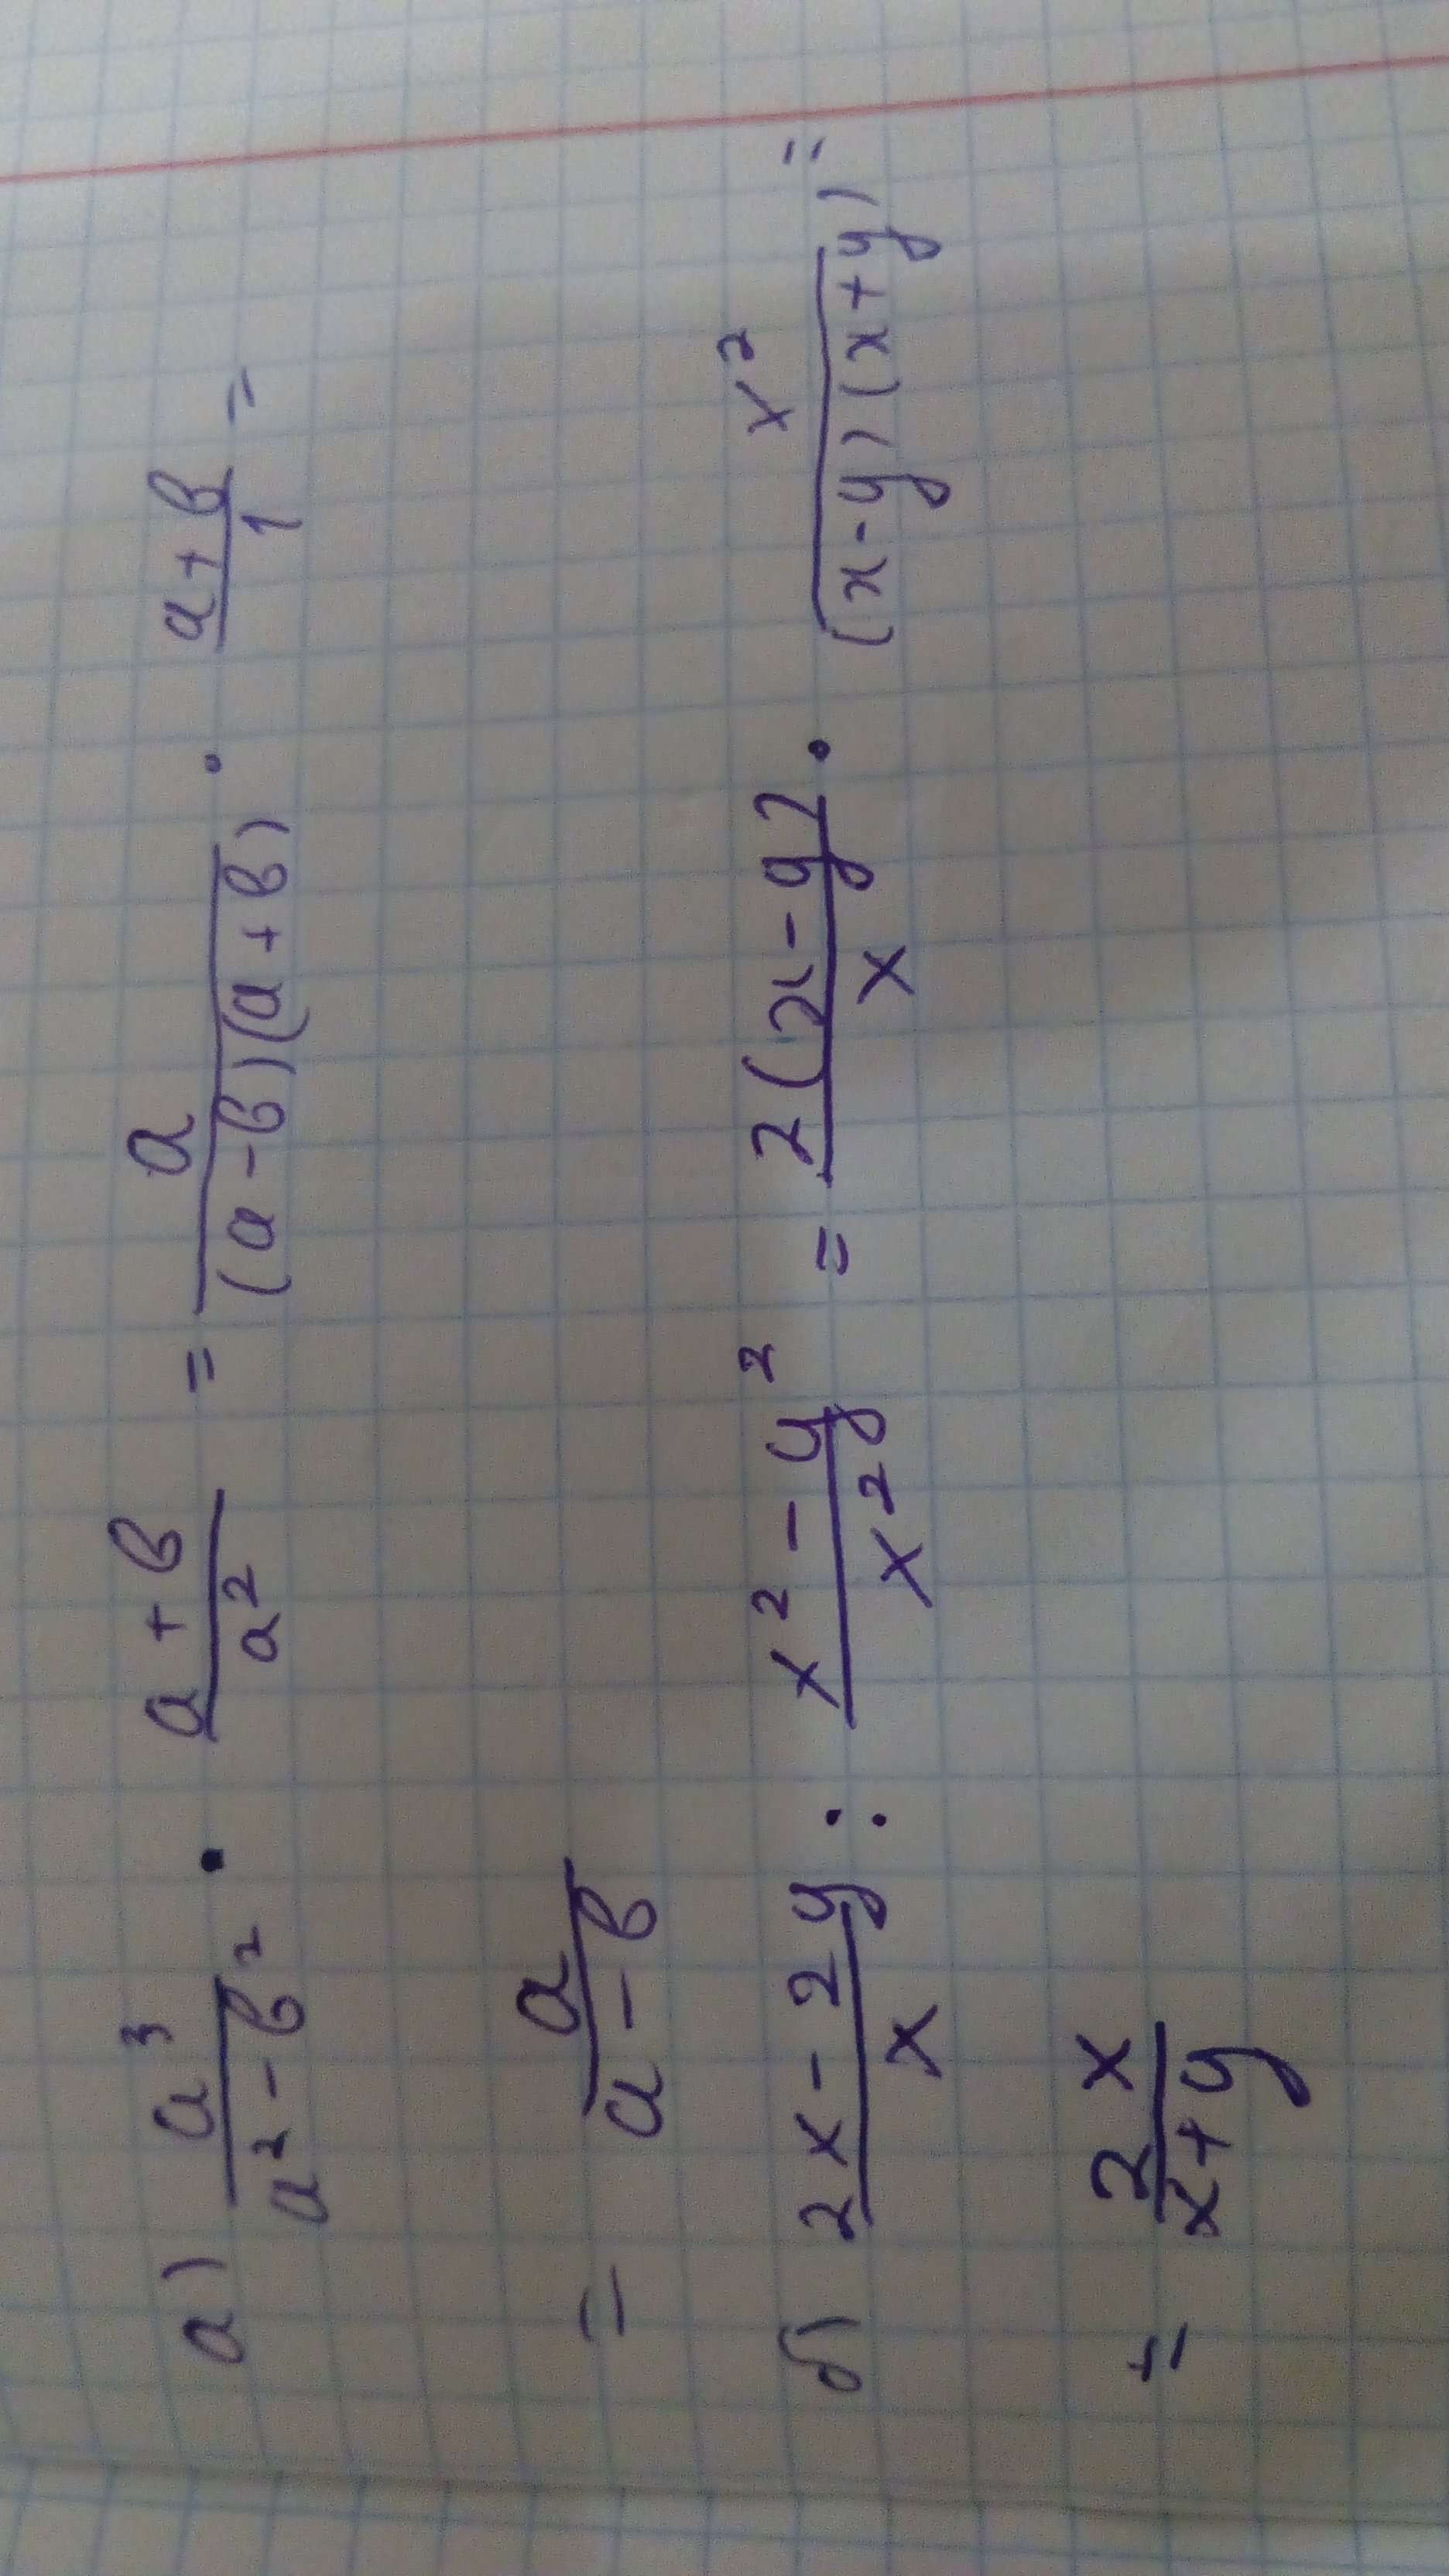 а) a³/(a² - b²) · (a + b)/a² = a/((a - b)(a + b)) · (a + b)/1 =
= a/(a - b)
б) (2x - 2y)/x : (x² - y²)/x² = 2(x - y)/x · x²/((x - y)(x + y)) =
= 2x/(x + y)